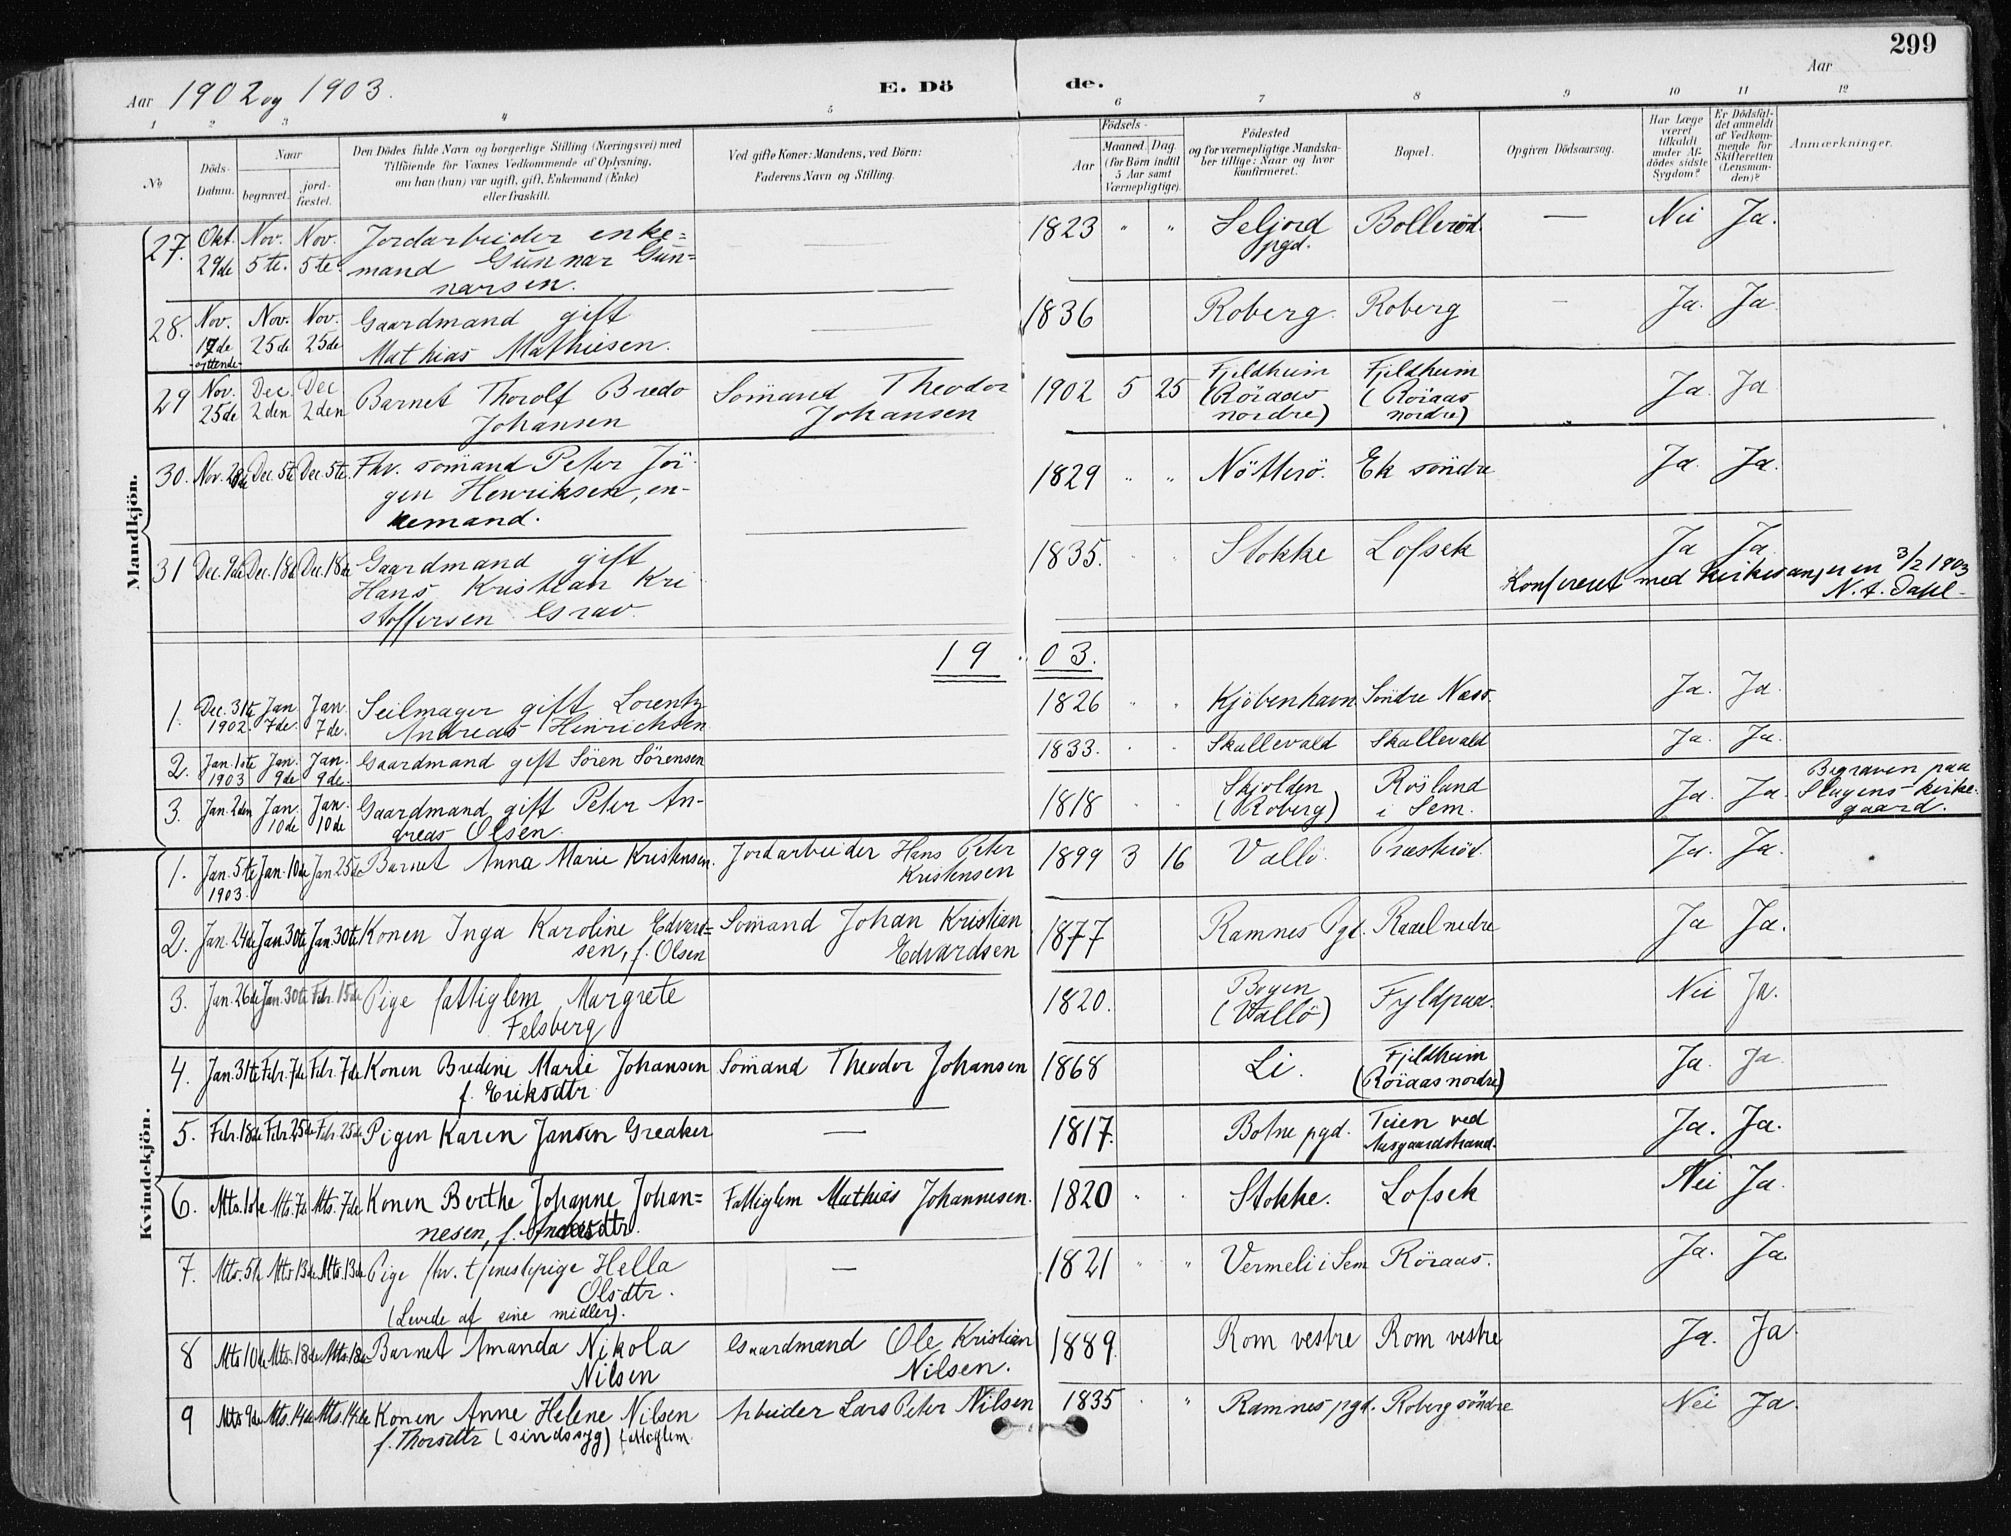 299
Aar 1902 og 1903.
E. Dö de.
Aar
1 2 3 4 5 6 7 8 9 10 11 12
No
Döds-Datum.
Naar begravet. jord-fæstet.
Den Dödes fulde Navn og borgerlige Stilling (Næringsvei) med Tilföiende for Voxnes Vedkommende af Oplysning, om han (hun) var ugift, gift, Enkemand (Enke) eller fraskilt.
Ved gifte Koner: Mandens, ved Börn: Faderens Navn og Stilling.
Födsels-
Aar Maaned. Dag. (for Börn indtil 5 Aar samt Værnepligtige).
Födested og for værnepligtige Mandskaber tillige: Naar og hvor konfirmeret.
Bopæl.
Opgiven Dödsaarsag.
Har Læge været tilkaldt under Afdödes sidste Sygdom?
Er Dödsfaldet anmeldt af Vedkommende for Skifteretten (Lensmanden)?
Anmærkninger.
Mandkjön.
27. Okt. 29de Nov. 5te. Nov. 5te. Jordarbeider enkemand Gunnar Gunnarsen. — 1823 " " Seljord pgd. Bolleröd. — Nei Ja.
28. Nov. 17de attende Nov. 25de Nov. 25de Gaardmand gift Mathias Mathiesen. — 1836 Roberg. Roberg — Ja. Ja
29 Nov. 25de Dec. 2den Dec 2den Barnet Thorolf Bredo Johansen Sömand Theodor Johansen 1902 5 25 Fjeldheim (Röraas nordre) Fjeldheim (Röraas nordre) Ja. Ja
30. Nov. 28de Dec. 5te Dec. 5te. Fhv. sömand Peter Jörgen Henriksen, enkemand. 1829 " " Nötterö. Ek söndre Ja. Ja.
31 Dec. 9de Dec. 18de Dec. 18de Gaardmand gift Hans Kristian Kristoffersen Grav. 1835. Stokke Lofsek Ja Ja
Konfereret med kirkesangeren 3/2 1903
N. A. Dahl
1903.
1. Dec. 31te 1902. Jan. 7de. Jan. 7de. Seilmager gift Lorentz Andreas Hinrichsen 1826 " " Kjöbenhavn Söndre Næss. Ja. Ja.
2. Jan. 1ste 1903 Jan. 9de Jan. 9de. Gaardmand gift Sören Sörensen 1833. Skallevald Skallevald Ja. Ja.
3. Jan. 2den Jan. 10de Jan. 10de Gaardmand gift Peter Andreas Olsen. 1818 Skjolden (Roberg) Rösland i Sem. Ja. Ja. Begraven paa Slagens kirkegaard.
Kvindekjön.
1. Jan. 5te 1903. Jan. 10de Jan 25de Barnet Anna Marie Kristensen. Jordarbeider Hans Peter Kristensen 1899 3 16 Vallö. Præsteröd. Ja. Ja.
2. Jan. 24de Jan. 30te Jan. 30te Konen Inga Karoline Edvardsen, f. Olsen Sömand Johan Kristian Edvardsen 1877 Ramnes Pgd. Raael nedre Ja Ja.
3. Jan. 26de Jan. 30te Febr. 15de Pige fattiglem Margrete Felsberg 1820. Bogen (Vallö) Fyldpaa. Nei Ja.
4. Jan. 31te Febr. 7de Febr. 7de Konen Bredine Marie Johansen f. Eriksdtr. Sömand Theodor Johansen 1868 Li. Fjeldheim (Röraas nordre) Ja. Ja
5. Febr. 18de Febr. 25de Febr. 25de Pigen Karen Jansen Greaker — 1817. Botne pgd. Teien ved Aasgaardstrand. Ja. Ja.
6. Mts. 1ste Mts. 7de Mts. 7de Konen Berthe Johanne Johannesen, f. Andersdtr. Fattiglem Mathias Johannesen. 1820 " " Stokke. Lofsek Nei Ja.
7. Mts. 5te Mts 13de Mts. 13de Pige fhv. tjenestepige Hella Olsdtr. (Levede af sine midler). — 1821 " " Vermeli i Sem Röraas. Ja. Ja.
8 Mts 10de Mts. 18de Mts. 18de Barnet Amanda Nikola Nilsen Gaardmand Ole Kristian Nilsen. 1889. Rom vestre Rom vestre Ja. Ja.
9 Mts 9de Mts. 14de Mts. 14de Konen Anne Helene Nilsen f. Thorsdtr (sindssyg) Arbeider Lars Peter Nilsen 1835 " Ramnes pgd. Roberg söndre Nei Ja.